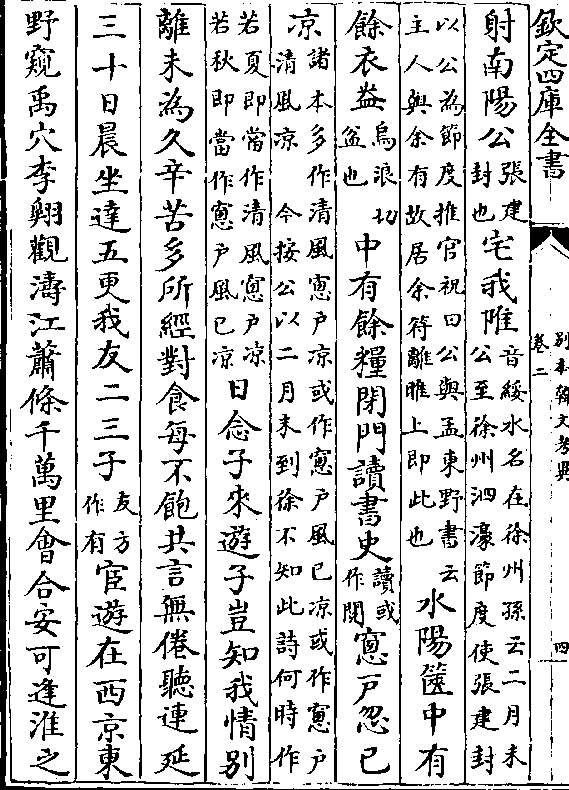 欽定四庫全書
別本韓文考異
卷二
四
射南陽公張建封也宅我睢音綏水名在徐州孫云二月末公至徐州泗濠節度使張建封
以公為節度推官祝曰公與孟東野書云主人與余有故居余符離睢上即此也水陽篋中有
餘衣盎烏浪切盆也中有餘糧閉門讀書史讀或作閱窻戸忽已
凉諸本多作清風窻戸凉或作窻戸風已凉或作窻戸清風凉 今按公以二月末到徐不知此詩何時作
若夏即當作清風窻戸凉若秋即當作窻戸風已凉日念子來遊子豈知我情別
離未為久辛苦多所經對食每不飽共言無倦聽連延
三十日晨坐達五更我友二三子友方作有宦遊在西京東
野窺禹穴李翺觀濤江蕭條千萬里會合安可逢淮之